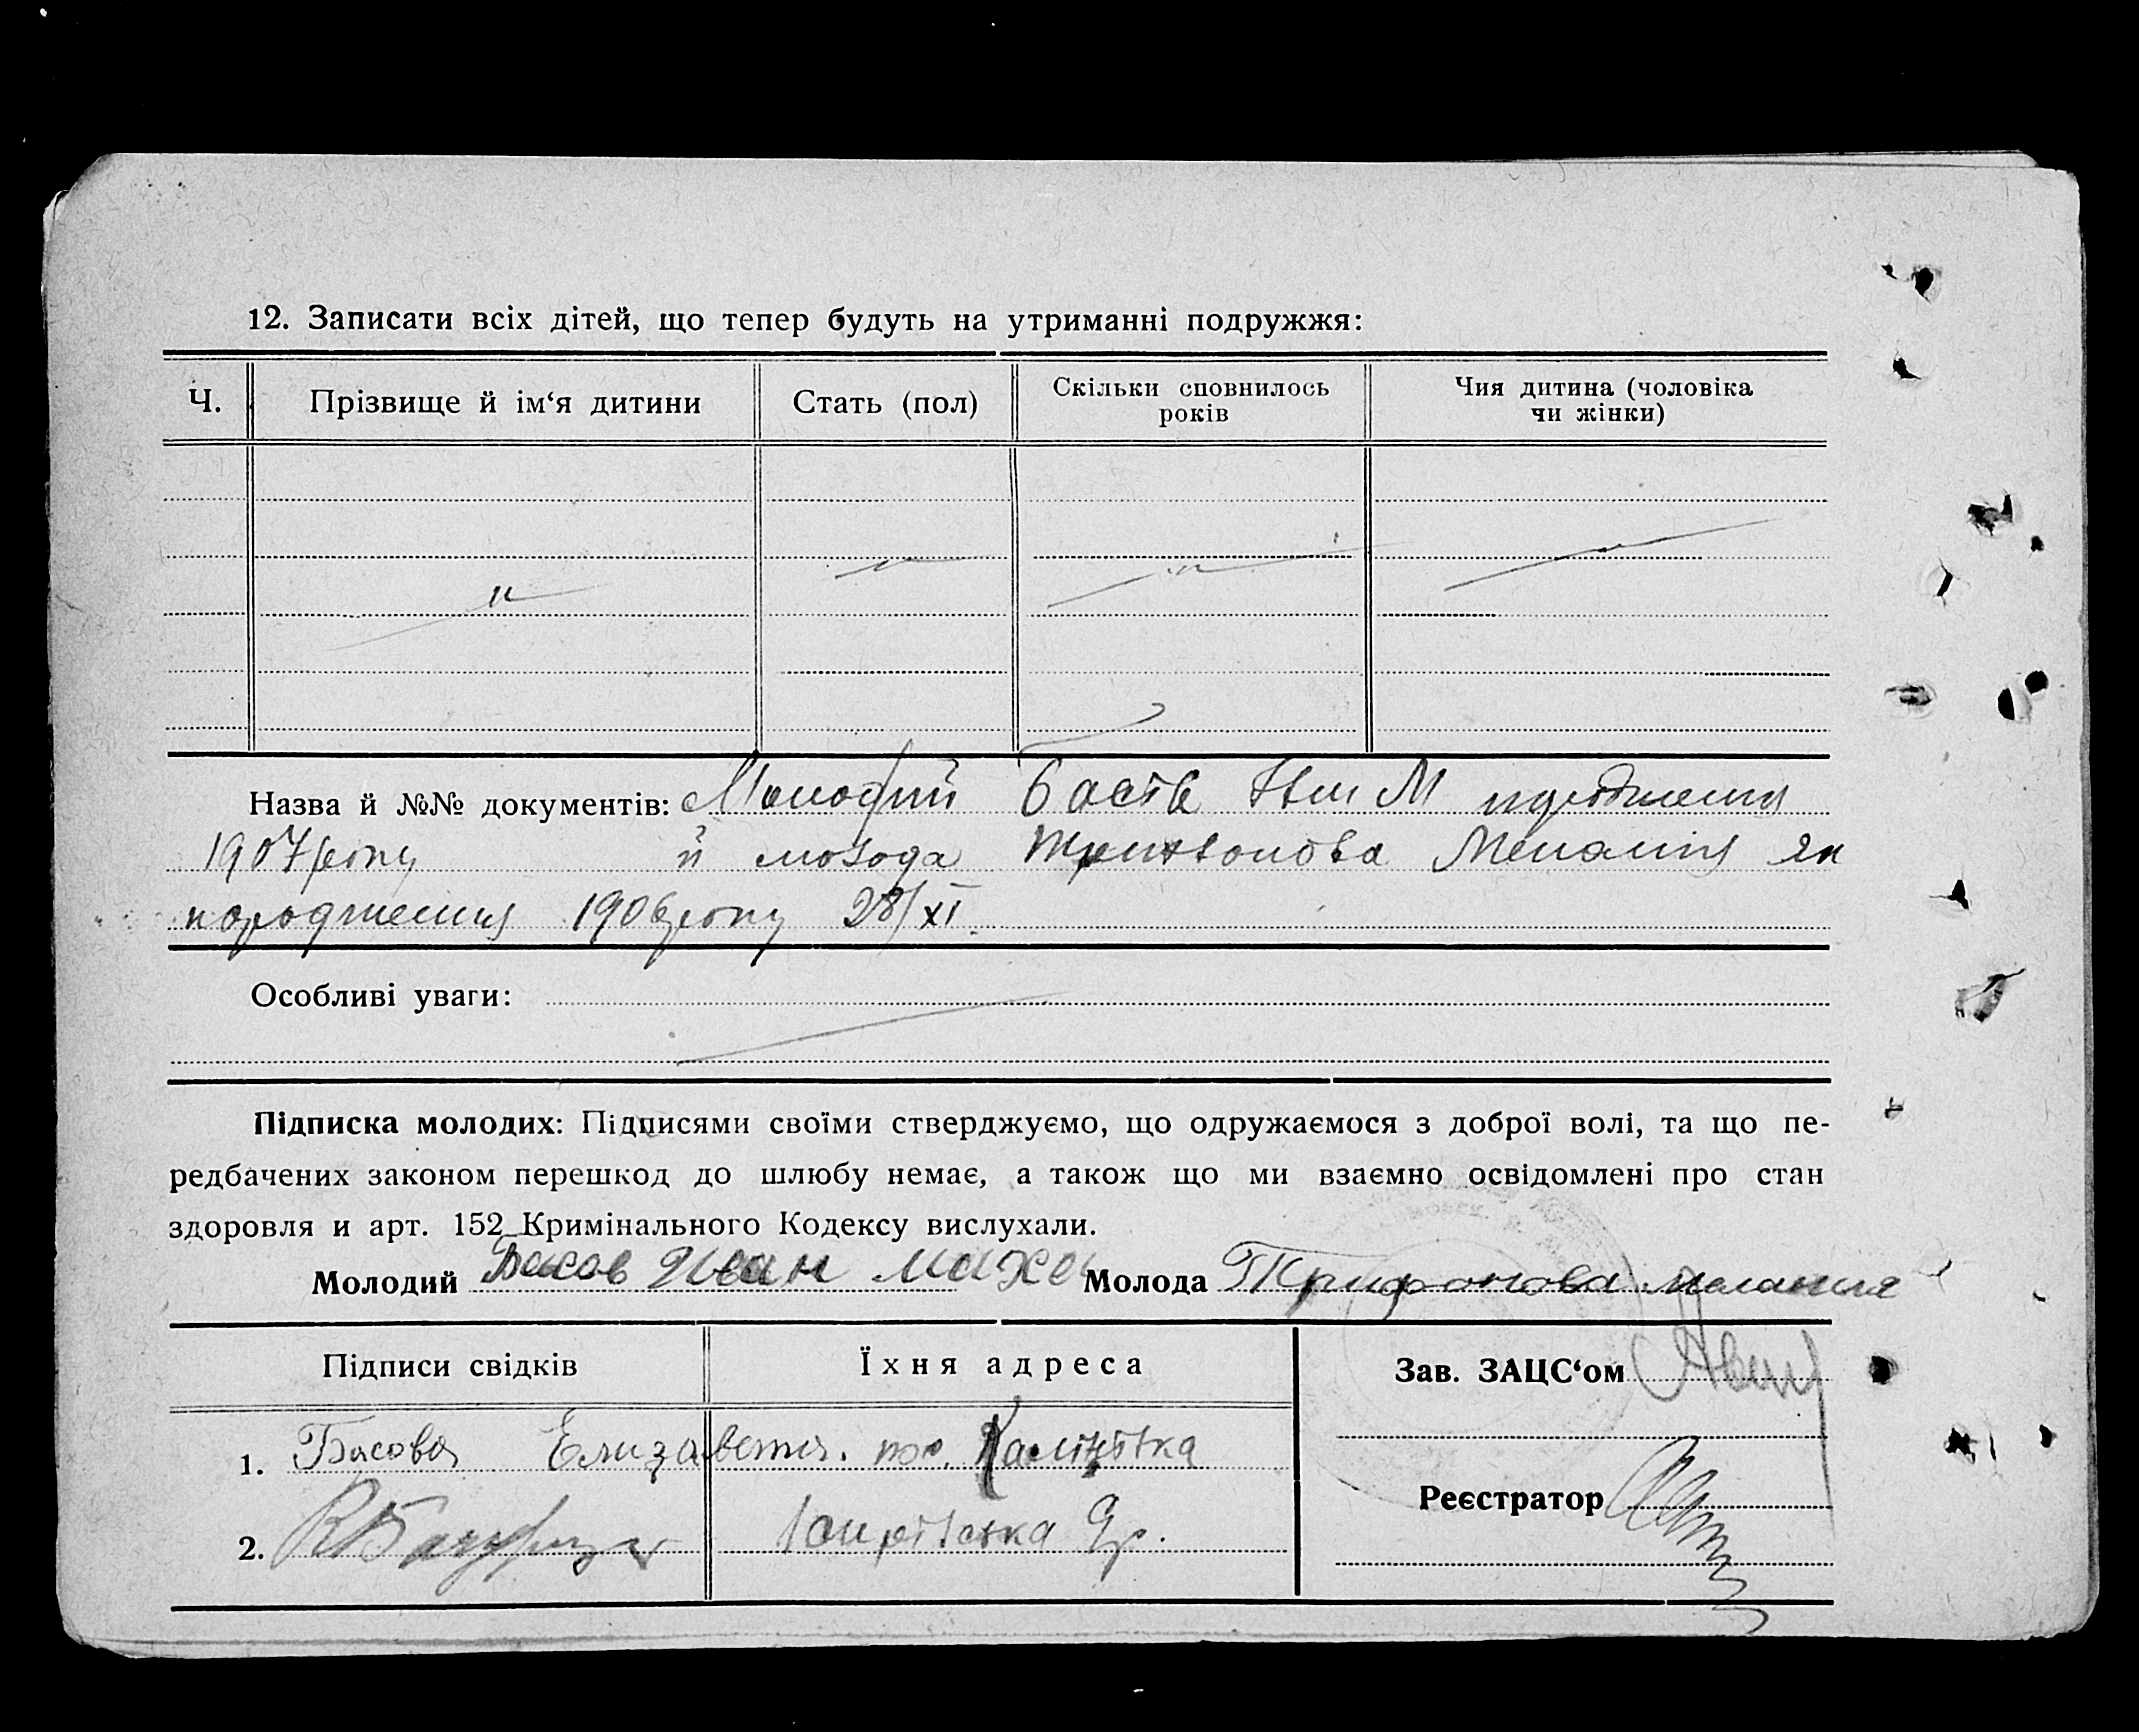 12. Записати всіх дітей, що тепер будуть на утриманні подружжя:
Ч. Прізвище й ім‘я дитини Стать (пол) Скільки сповнилось років Чия дитина (чоловіка чи жінки)
Назва й №№ документів: Молодий Басів Іван М народження
1907 року й молода Трихвонова Меланія Як
народження 1906 року 28/XI.
Особливі уваги:
Підписка молодих: Підписями своїми стверджуємо, що одружаємося з доброї волі, та що пе-
редбачених законом перешкод до шлюбу немає, а також що ми взаємно освідомлені про стан
здоровля и арт. 152 Кримінального Кодексу вислухали.
Молодий Басов Иван Молода Трифонова Мелания
Підписи свідків Їхня адреса Зав. ЗАЦС‘ом
1. Басова Елизавета.
Реєстратор
2.